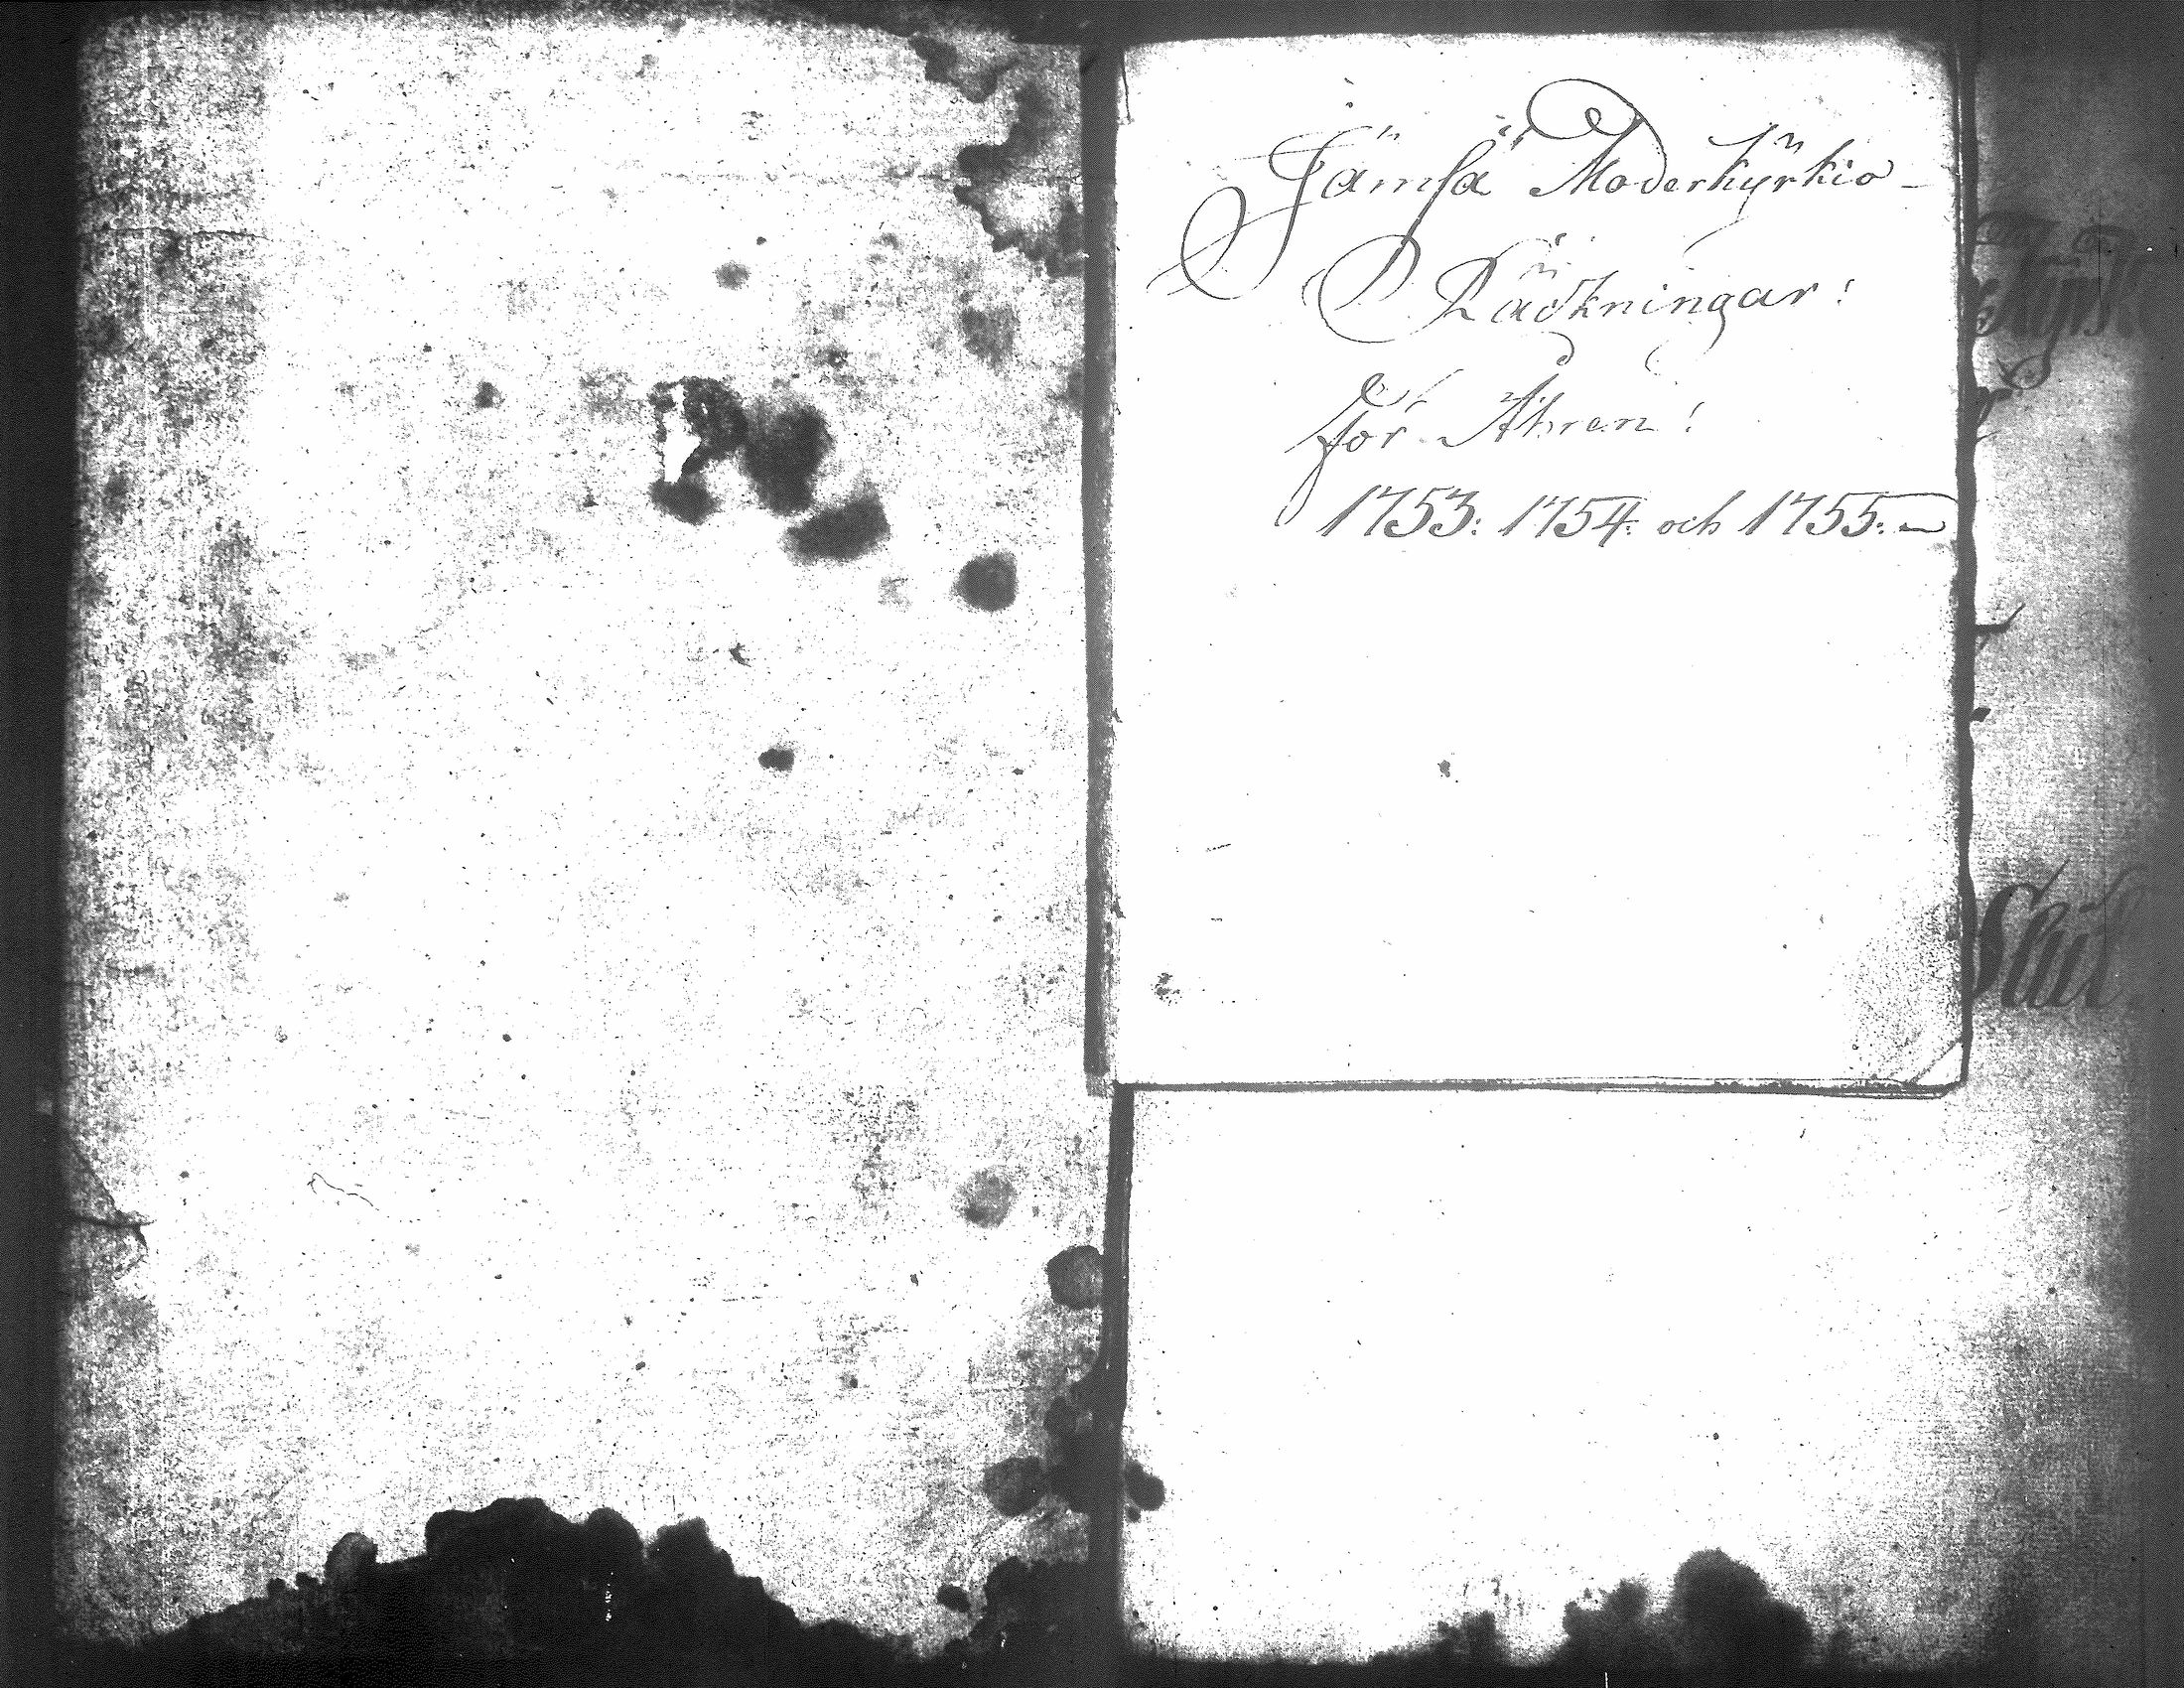 Jämsä Moderkÿrkio-
Räckningar!
för Åhren!
1753: 1754: och 1755: